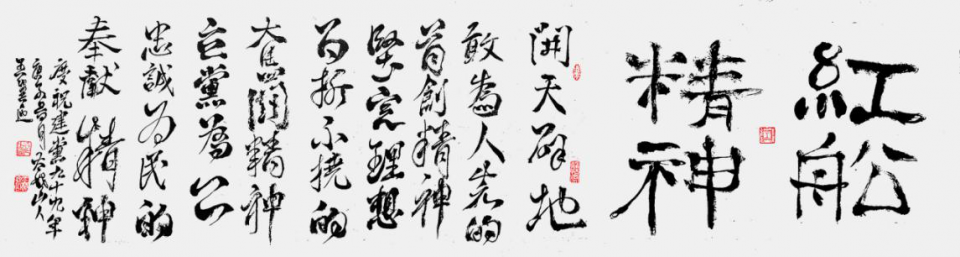 紅舩
精神
開天辟地
敢為人先的
首創精神
堅定理想
百折不撓的
奮鬥精神
立黨為公
忠誠為民的
奉獻精神
慶祝建黨九十九年
山人